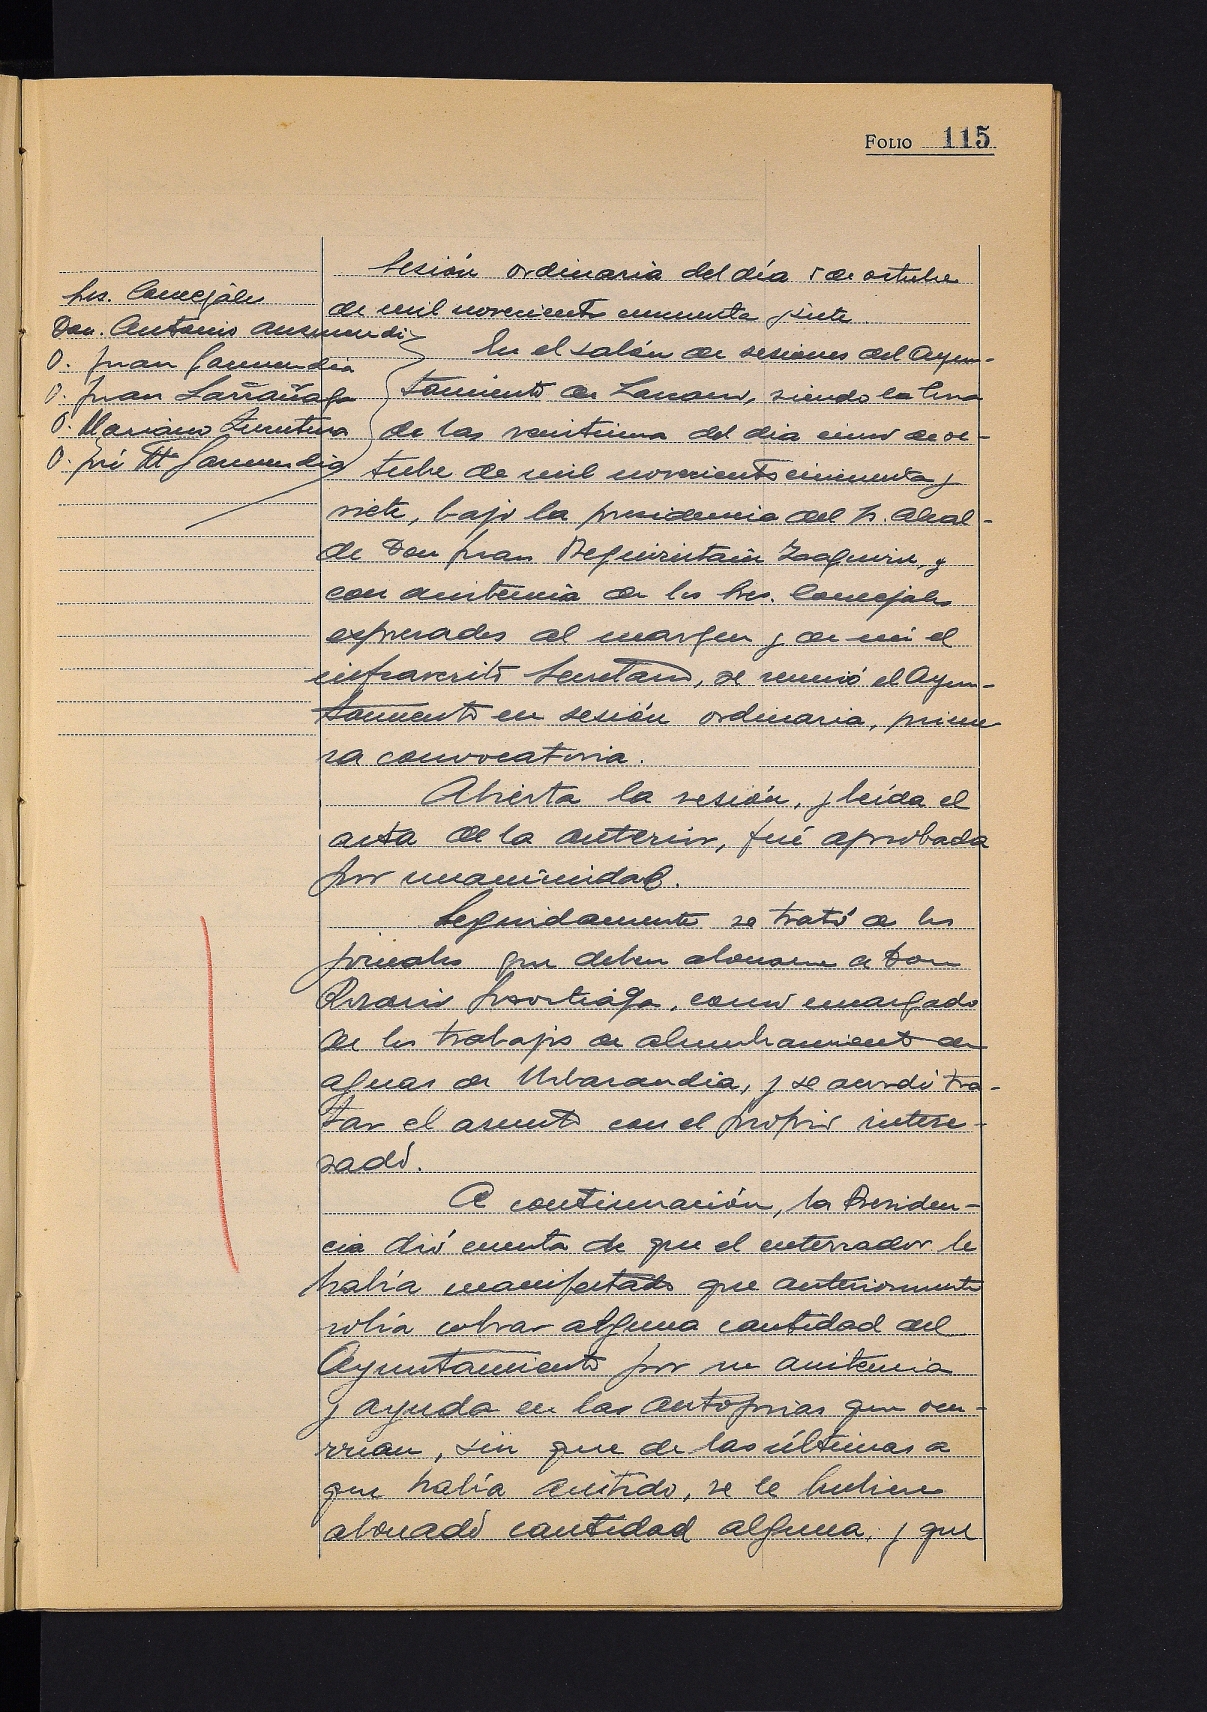 FOLIO 115
Sres. Concejales
Don. Antonio Ausmendi
D. Juan Garmendia
D. Juan Larrañaga
D. Mariano Zurutuza
D. José Mª Garmendia
Sesión ordinaria del día 5 de octubre
de mil novecientos cincuenta y siete.
En el salón de sesiones del Ayun-
tamiento de Lazcano, siendo la hora
de las veintiuna del dia cinco de oc-
tubre de mil novecientos cincuenta y
siete, bajo la presidencia del Sr. Alcal-
de Don Juan Beguiristain Izaguirre, y
con asistencia de los Sres. Concejales
expresados al margen y de mí el
infrascrito Secretario, se reunió el Ayun-
tamiento en sesión ordinaria, prime
ra convocatoria.
Abierta la sesión, y leída el
acta de la anterior, fué aprobada
por unanimidad.
Seguidamente se trató de los
jornales que deben abonarse a Don
Rosario, como encargado
de los trabajos de alumbramiento de
aguas de Urbarandia, y se acordó tra-
tar el asunto con el propio intere-
sado.
A continuación, la Presiden-
cia dió cuenta de que el enterrador le
había manifestado que anteriormente
solía cobrar alguna cantidad del
Ayuntamiento por su asistencia
y ayuda en las autopsias que ocu-
rrían, sin que de las últimas a
que había asistido, se le hubiere
abonado cantidad alguna, y que